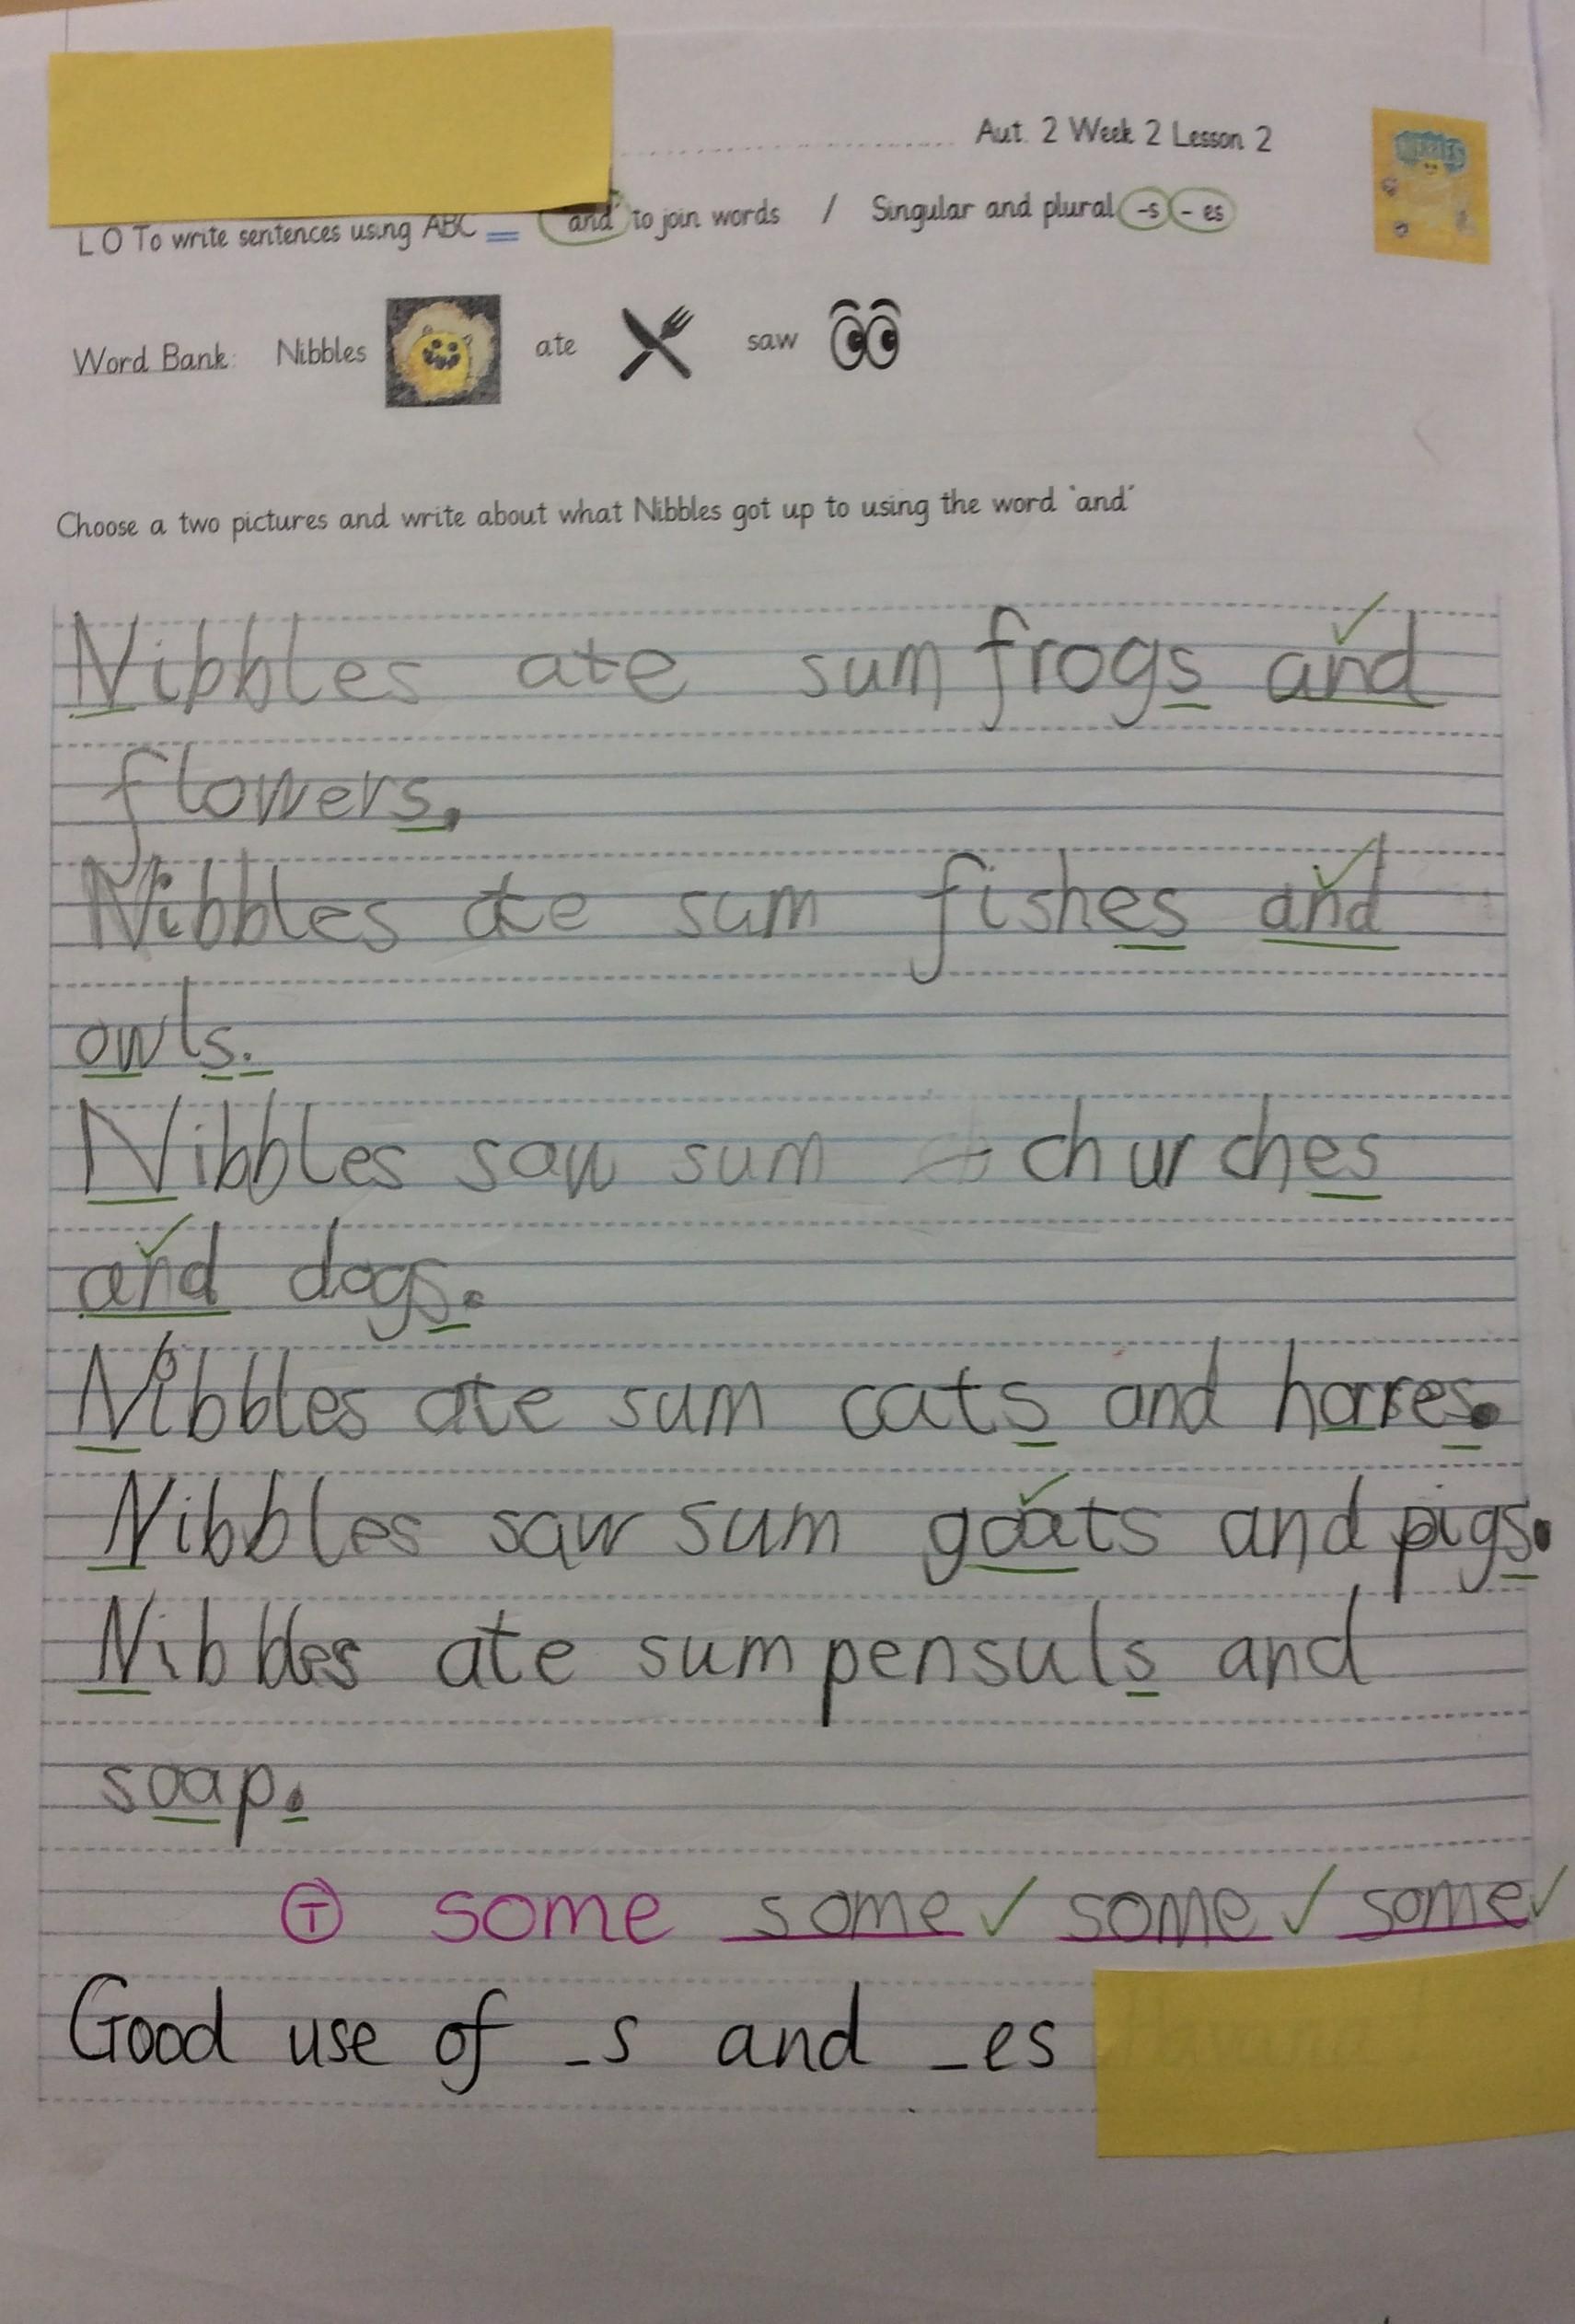 Aut. 2 Week 2 Lesson 2
L O To write sentences using ABC "and" to join words / Singular and plural -s - es
Word Bank: Nibbles ate saw
Choose a two pictures and write about what Nibbles got up to using the word 'and'
Nibbles ate sum frogs and
flowers.
Nibbles ate sum fishes and
owls.
Nibbles saw sum churches
and dogs.
Nibbles ate sum cats and horses.
Nibbles saw sum goats and pigs.
Nibbles ate sum pensuls and
soap.
T some some some some
Good use of _s and _es